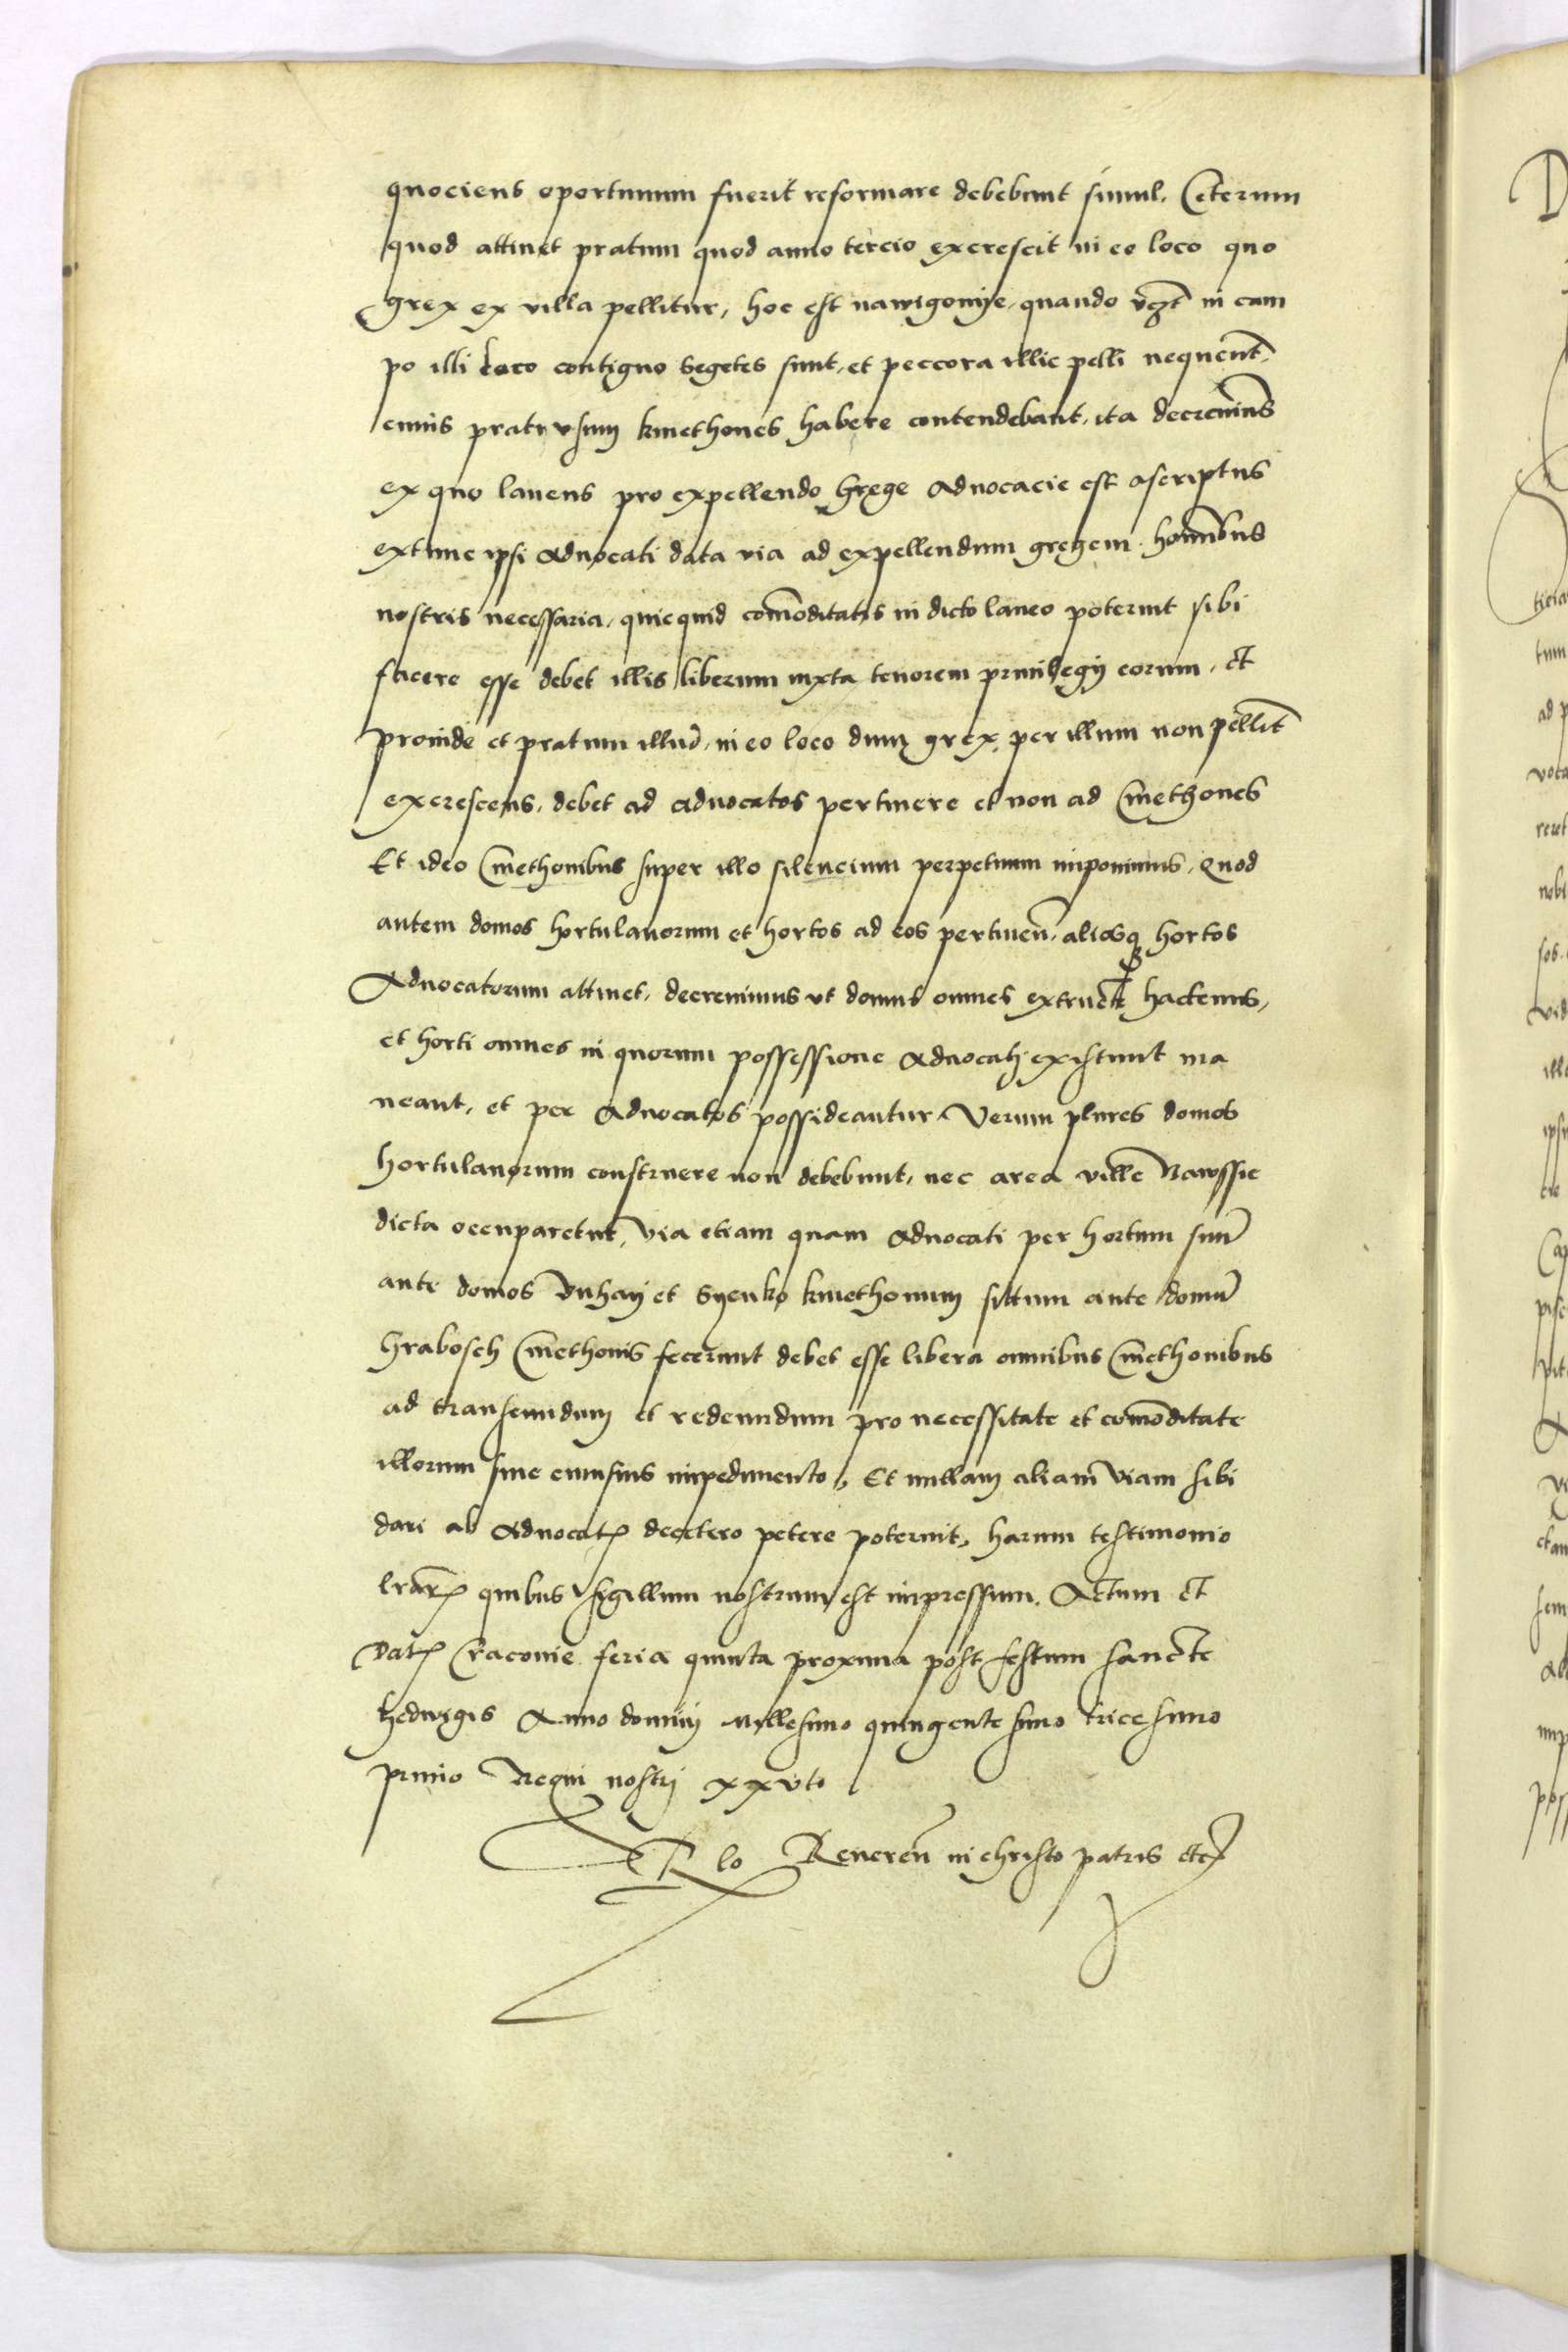 quociens oportunum fuerit reformare debebunt simul. Ceterum
quod attinet pratum quod anno tercio excrescit in eo loco quo
grex ex villa pellitur, hoc est nawigonije, quando vꝫt in cam
po illi loco contiguo segetes sunt, et peccora illic pelli nequeunt,
cuius prati vsum kmethones habere contendebant, ita decrevim̄s
ex quo laneus pro expellendo grege Aduocacie est ascriptus
extunc ipsi Aduocati data via ad expellendum gregem hom̄ibus
nostris necessaria, quicquid com̄oditatis in dicto laneo poterint sibi
facere esse debet illis liberum iuxta tenorem priuilegij eorum, et
proinde et pratum illud, in eo loco dum grex per illum non pellit̄
excrescens, debet ad aduocatos pertinere et non ad Cmethones
Et ideo Cmethonibus super illo silencium perpetuum imponimus, Quod
autem domos hortulanorum et hortos ad eos pertinen̄, aliosqꝫ hortos
Aduocatorum attinet, decreuimus vt domus omnes extructe hactenus,
et horti omnes in quorum possessione Aduocati existunt ma
neant, et per Aduocatos possideantur, Verum plures domos
hortulanorum construere non debebunt, nec area ville Nawssie
dicta occuparetur, Via etiam quam Aduocati per hortum suum̄
ante domos Duhaij et Syenko kmethonum sittum ante domum̄
Grabosch Cmethonis fecerunt debet esse libera omnibus Cmethonibus
ad transeundum et redeundum pro necessitate et com̄oditate
illorum sine cuiusuis impedimento, Et nullam aliam viam sibi
dari ab Aduocatꝭ decetero petere poterint, harum testimonio
lrarꝫ quibus sigillum nostrum est impressum. Actum et
Datꝭ Cracouie feria quinta proxima post festum sancte
hedwigis Anno domini Millesimo quingentesimo tricesimo
primo Regni nostri xxvto
R lo Reueren̄ in christo patris etc